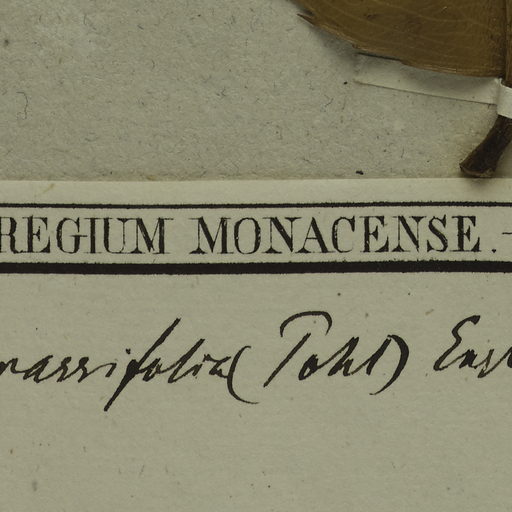 REGIUM MONACENSE.
crassifolia (Pohl) Engl